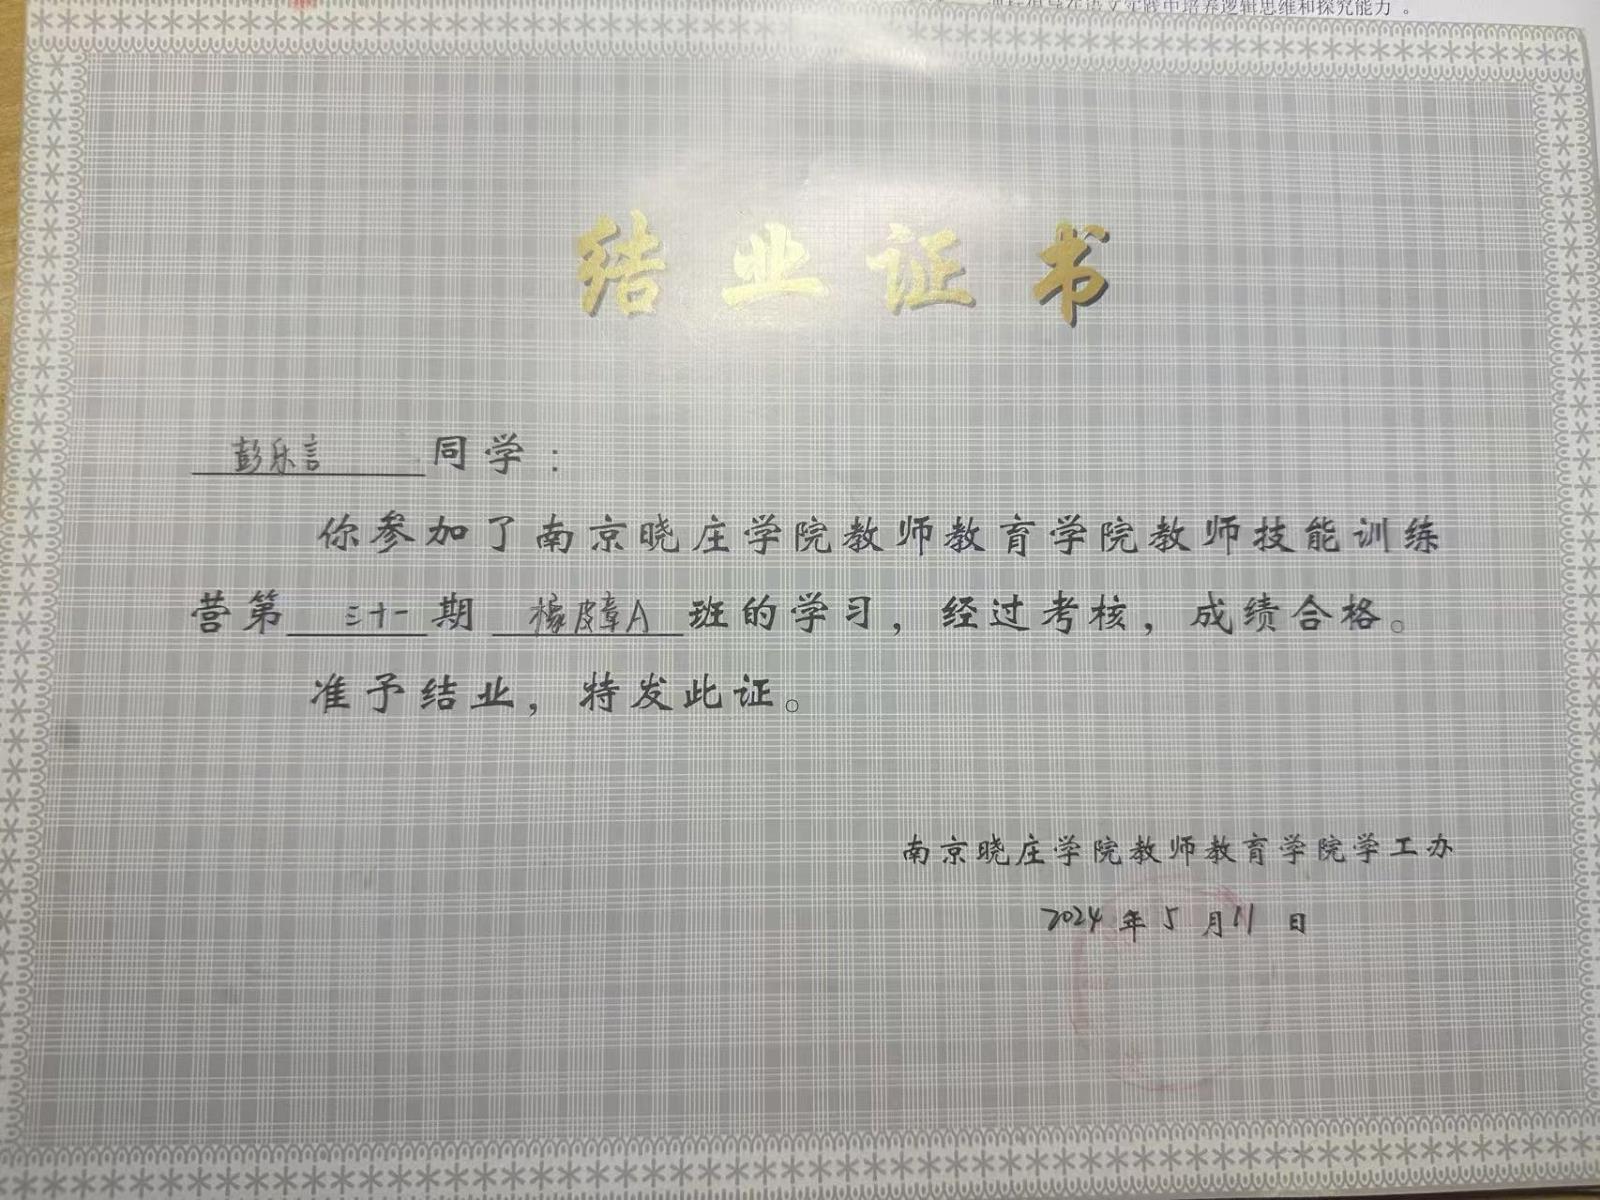 在语文实践中培养逻辑思维和探究能力。
结业证书
彭乐言 同学：
你参加了南京晓庄学院教师教育学院教师技能训练
营第 三十一 期 橡皮章A 班的学习，经过考核，成绩合格。
准予结业，特发此证。
南京晓庄学院教师教育学院学工办
2024 年 5 月 11 日